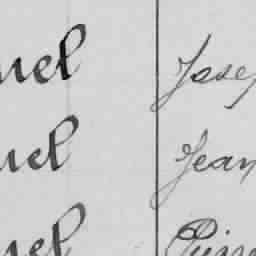 uel Jose
uel Jean
uel Pierr